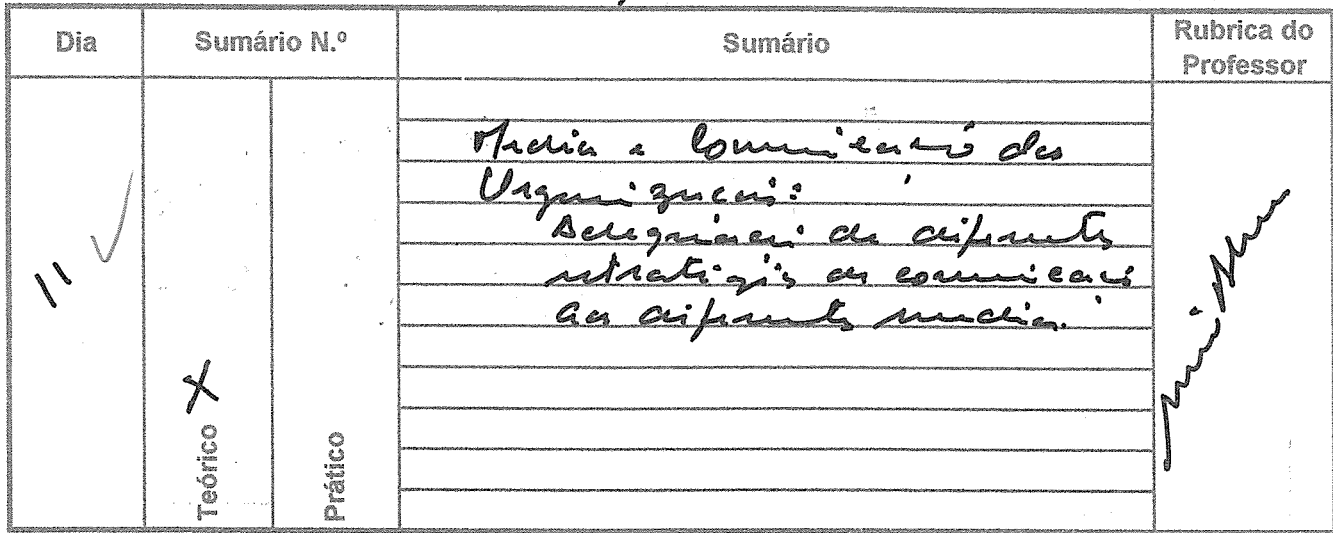 Dia
Sumário N.º
Sumário
Rubrica do
Professor
11
X
Teórico
Prático
Media e Comunicação das
Organizações:
Adequação de diferentes
estratégias de comunicação
aos diferentes media.